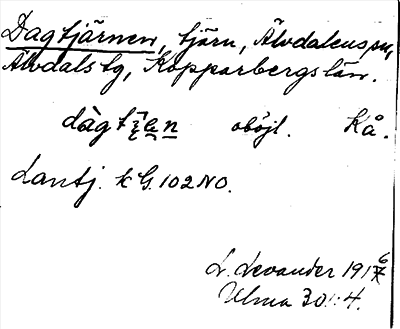 Dagtjärnen, tjärn, Älvdalens sn,
Älvdals tg, Kopparbergs län.
oböjl. Kå.
Lantj. k G. 102 NO.
L. Levander 1916
Ulma 301:4.